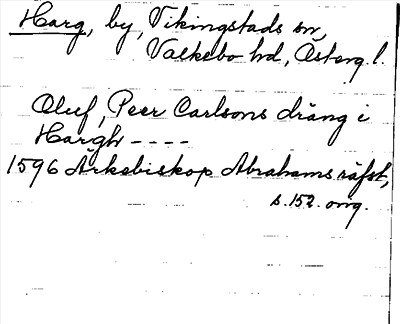 Harg, by, Vikingstads sn,
Valkebo hd, Österg. l.
Oluf, Peer Carlsons dräng i
Hargh ----
1596 Ärkebiskop Abrahams räfst,
s. 152. orig.